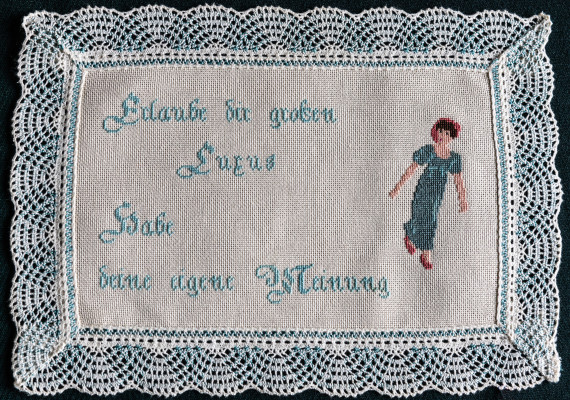 Erlaube dir großen
Luxus
Habe
deine eigene Meinung